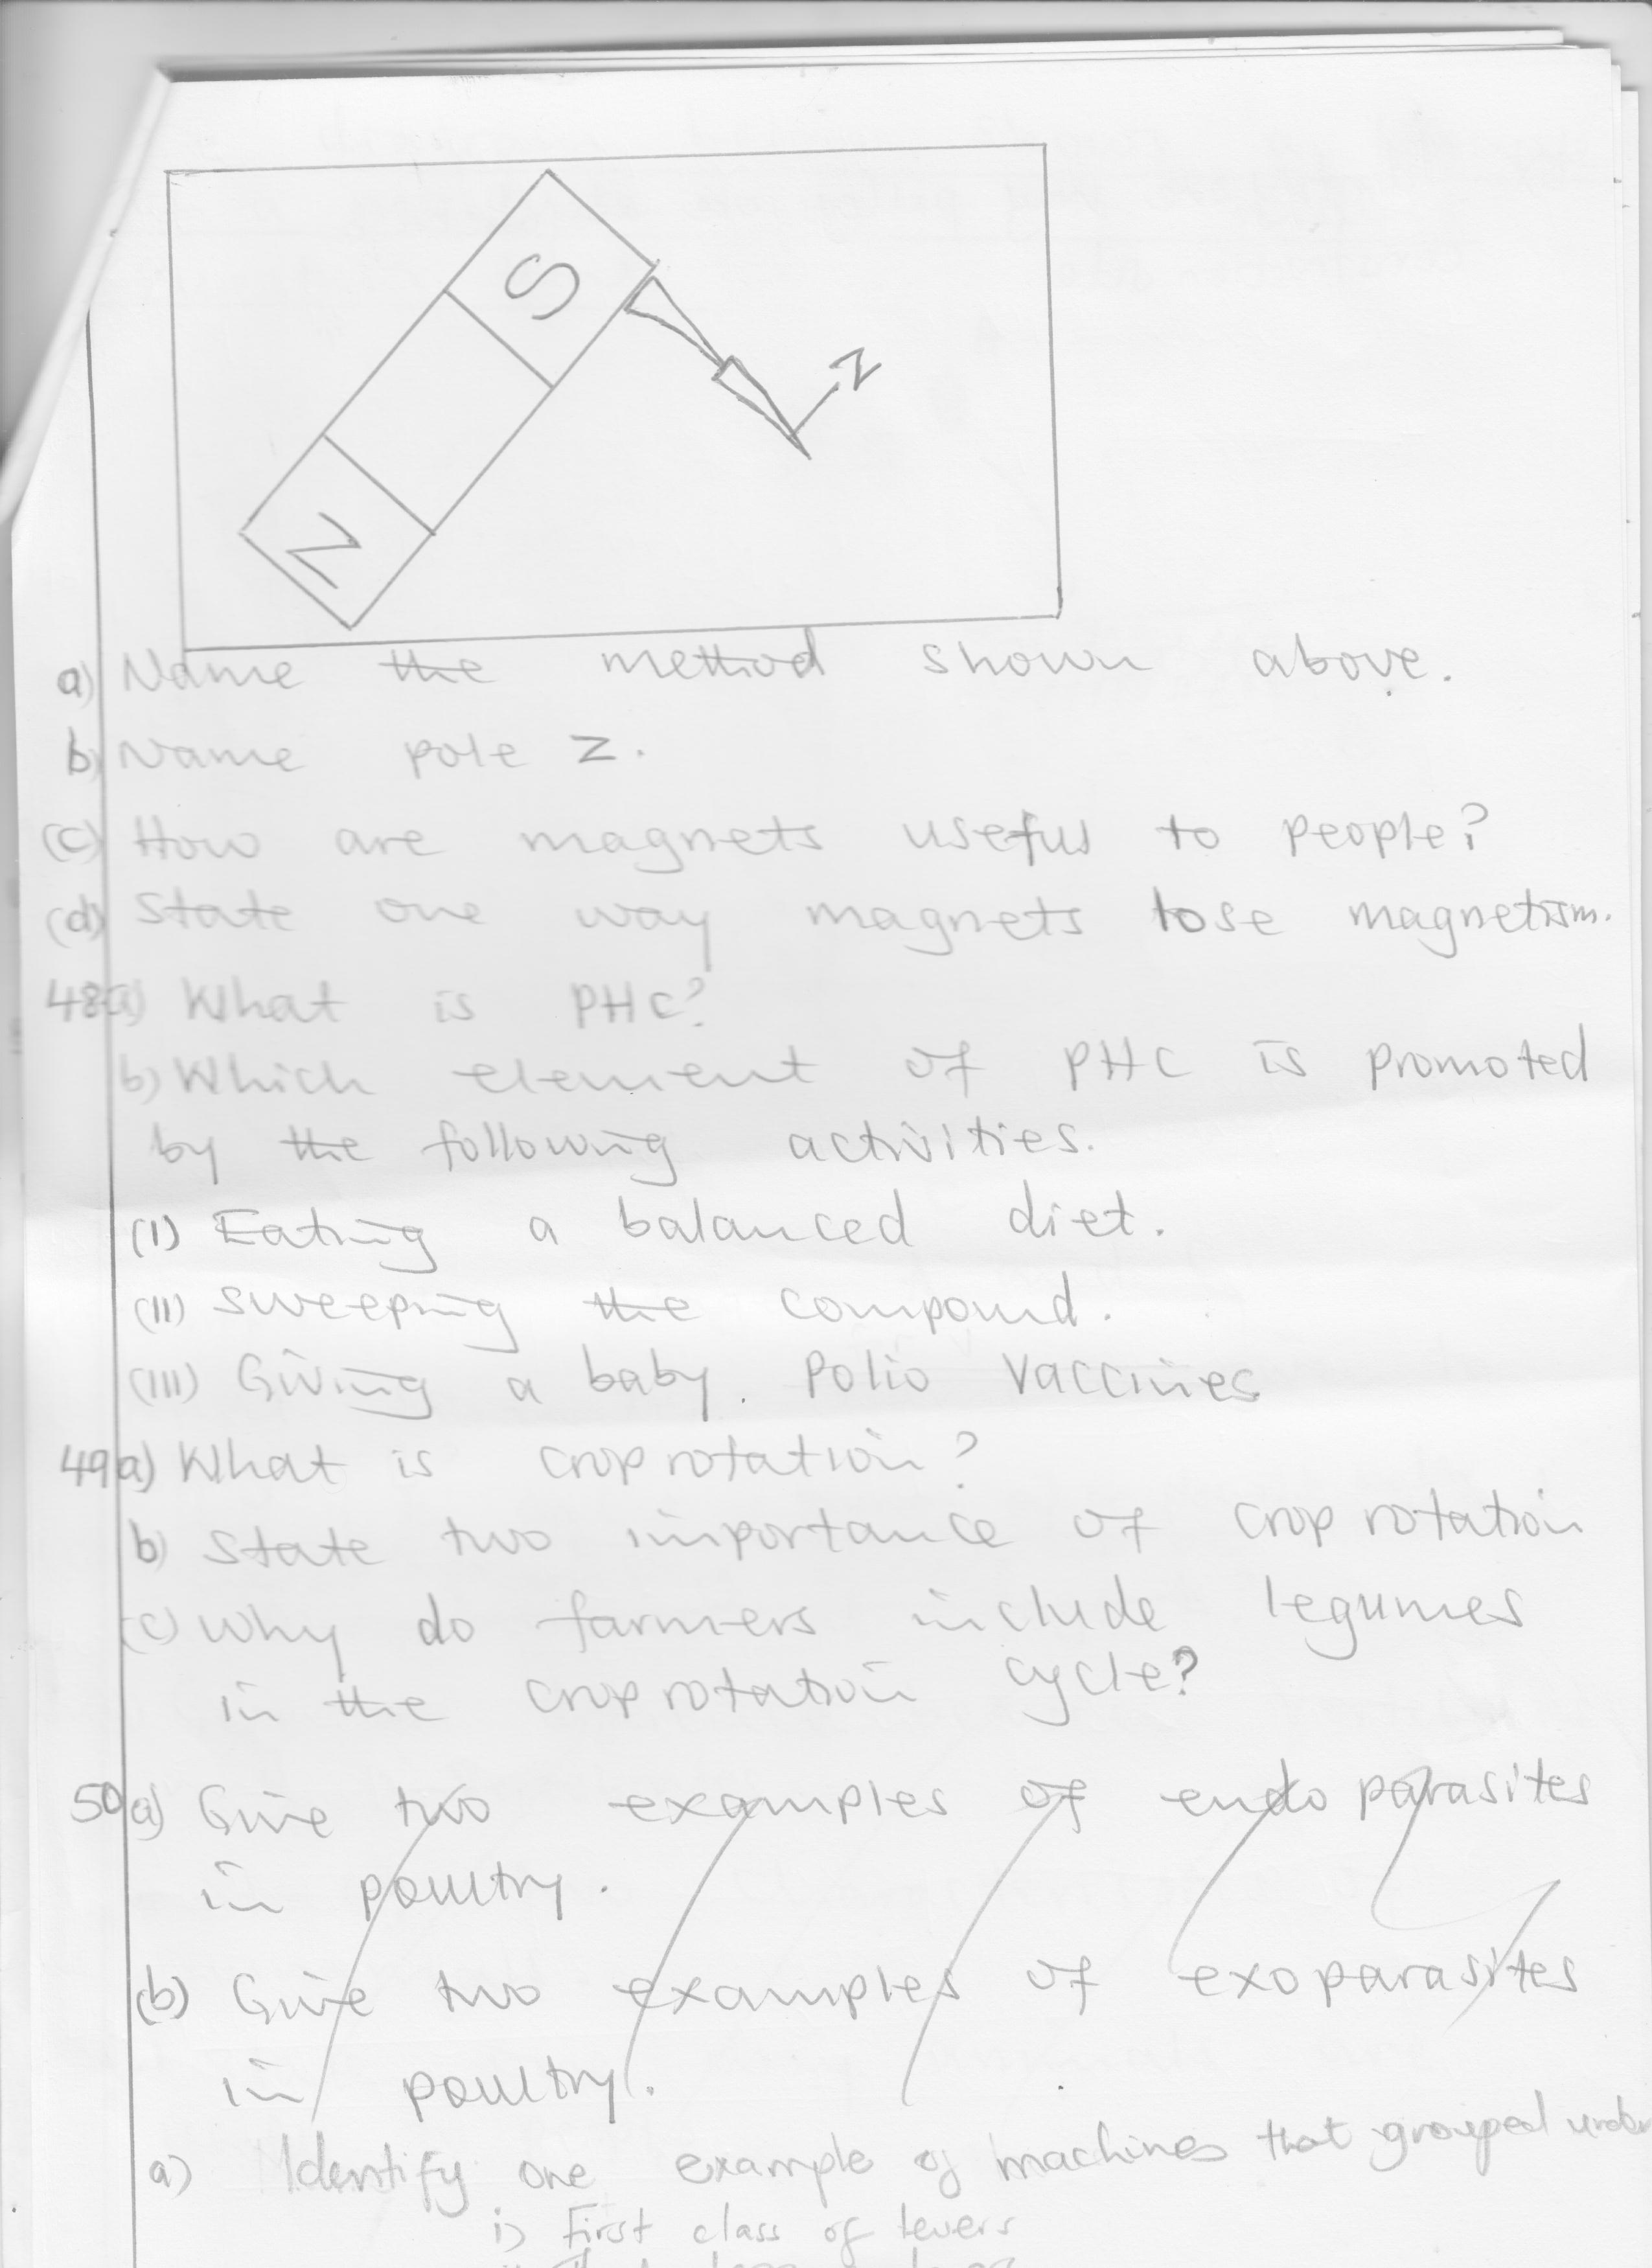 S
Z
N
a) Name the method shown above.
b) Name pole Z.
(c) How are magnets useful to people?
(d) State one way magnets lose magnetism.
48a) What is PHC?
b) Which element of PHC is promoted
by the following activities.
(I) Eating a balanced diet.
(II) Sweeping the compound.
(III) Giving a baby. Polio Vaccines
49a) What is crop rotation?
b) State two importance of crop rotation
(c) Why do farmers include legumes
in the crop rotation cycle?
50a) Give two examples of endo parasites
in poultry.
(b) Give two examples of exoparasites
in poultry.
a) Identify one example of machines that grouped under
i) First class of levers